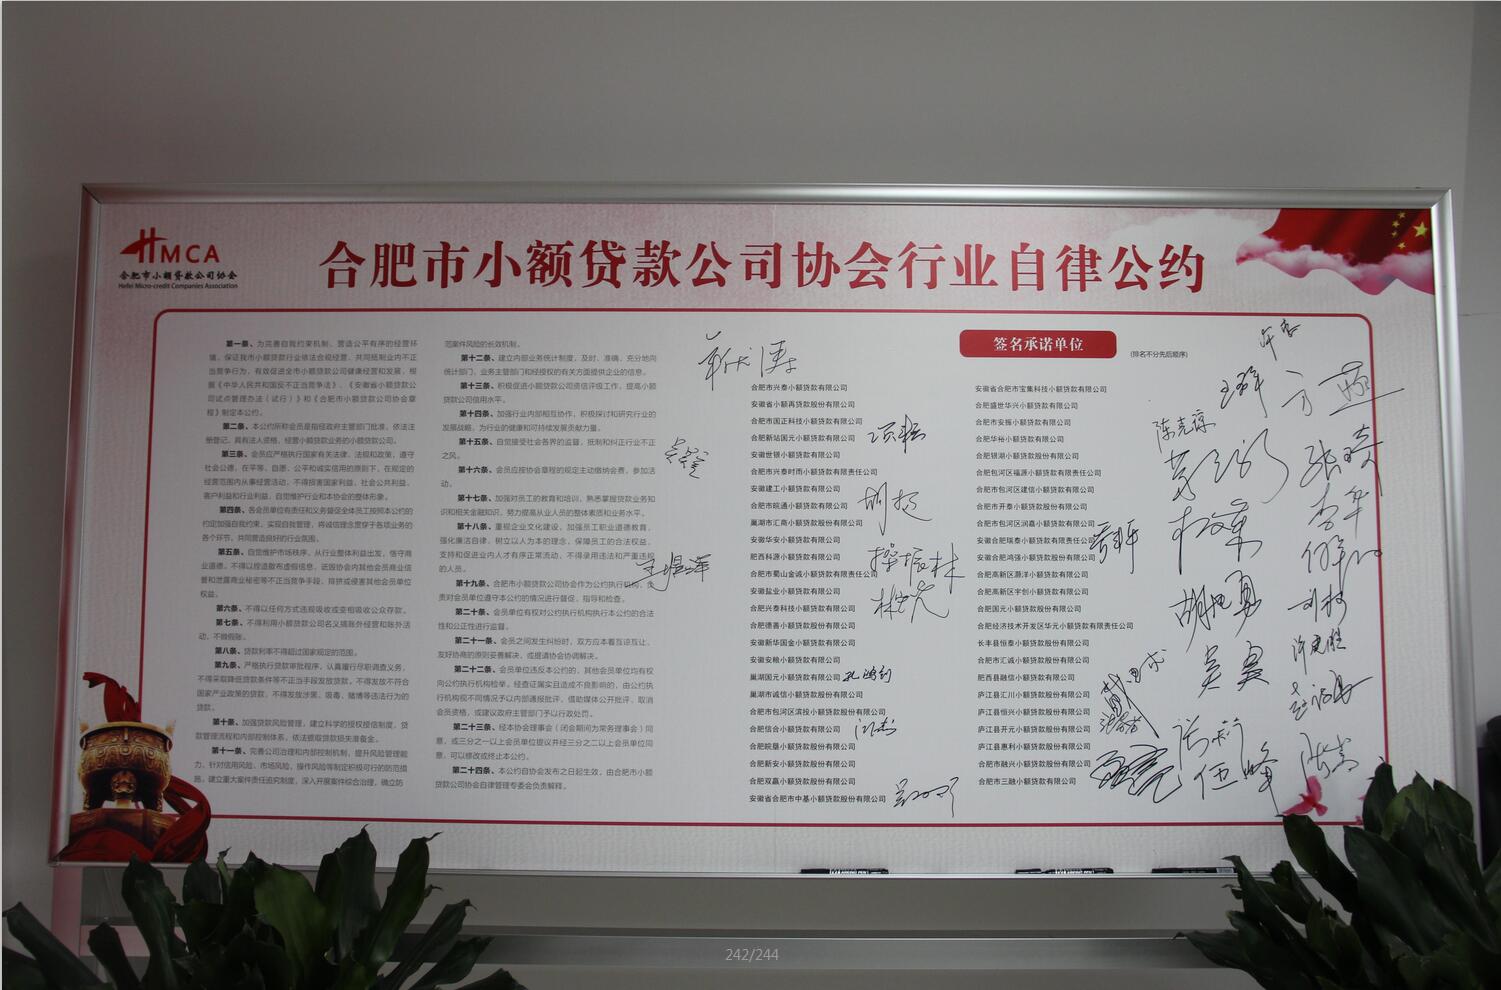 HMCA
合肥市小额贷款公司协会
Hefei Micro-credit Companies Association
合肥市小额贷款公司协会行业自律公约
第一条、为完善自我约束机制，营造公平有序的经营环
境，保证我市小额贷款行业依法合规经营，共同抵制业内不正
当竞争行为，有效促进全市小额贷款公司健康经营和发展，根
据《中华人民共和国反不正当竞争法》、《安徽省小额贷款公
司试点管理办法（试行）》和《合肥市小额贷款公司协会章
程》制定本公约。
第二条、本公约所称会员是指经政府主管部门批准，依法注
册登记，具有法人资格，经营小额贷款业务的小额贷款公司。
第三条、会员应严格执行国家有关法律、法规和政策，遵守
社会公德，在平等、自愿、公平和诚实信用的原则下，在规定的
经营范围内从事经营活动，不得损害国家利益、社会公共利益、
客户利益和行业利益，自觉维护行业和本协会的整体形象。
第四条、各会员单位有责任和义务督促全体员工按照本公约的
约定加强自我约束，实现自我管理，将诚信理念贯穿于各项业务的
各个环节，共同营造良好的行业氛围。
第五条、自觉维护市场秩序，从行业整体利益出发，恪守商
业道德，不得以捏造散布虚假信息，诋毁协会内其他会员商业信
誉和泄露商业秘密等不正当竞争手段，排挤或侵害其他会员单位
权益。
第六条、不得以任何方式违规吸收或变相吸收公众存款。
第七条、不得利用小额贷款公司名义搞账外经营和账外活
动，不做假账。
第八条、贷款利率不得超过国家规定的范围。
第九条、严格执行贷款审批程序，认真履行尽职调查义务，
不得采取降低贷款条件等不正当手段发放贷款，不得发放不符合
国家产业政策的贷款，不得发放涉黑、吸毒、赌博等违法行为的
贷款。
第十条、加强贷款风险管理，建立科学的授权授信制度，贷
款管理流程和内部控制体系，依法提取贷款损失准备金。
第十一条、完善公司治理和内部控制机制，提升风险管理能
力，针对信用风险、市场风险，操作风险等制定积极可行的防范措
施，建立重大案件责任追究制度，深入开展案件综合治理，确立防
范案件风险的长效机制。
第十二条、建立内部业务统计制度，及时、准确、充分地向
统计部门，业务主管部门和经授权的有关方面提供企业的信息。
第十三条、积极促进小额贷款公司资信评级工作，提高小额
贷款公司信用水平。
第十四条、加强行业内部相互协作，积极探讨和研究行业的
发展战略，为行业的健康和可持续发展贡献力量。
第十五条、自觉接受社会各界的监督，抵制和纠正行业不正
之风。
第十六条、会员应按协会章程的规定主动缴纳会费，参加活
动。
第十七条、加强对员工的教育和培训，熟悉掌握贷款业务知
识和相关金融知识，努力提高从业人员的整体素质和业务水平。
第十八条、重视企业文化建设，加强员工职业道德教育，
强化廉洁自律，树立以人为本的理念，保障员工的合法权益，
支持和促进业内人才有序正常流动，不得录用违法和严重违规
的人员。
第十九条、合肥市小额贷款公司协会作为公约执行机构，负
责对会员单位遵守本公约的情况进行督促，指导和检查。
第二十条、会员单位有权对公约执行机构执行本公约的合法
性和公正性进行监督。
第二十一条、会员之间发生纠纷时，双方应本着互谅互让、
友好协商的原则妥善解决，或提请协会协调解决。
第二十二条、会员单位违反本公约的，其他会员单位均有权
向公约执行机构检举。经查证属实且造成不良影响的，由公约执
行机构视不同情况予以内部通报批评，借助媒体公开批评，取消
会员资格，或建议政府主管部门予以行政处罚。
第二十三条、经本协会理事会（闭会期间为常务理事会）同
意，或三分之一以上会员单位提议并经三分之二以上会员单位同
意，可以修改或终止本公约。
第二十四条、本公约自协会发布之日起生效，由合肥市小额
贷款公司协会自律管理专委会负责解释。
签名承诺单位
(排名不分先后顺序)
合肥市兴泰小额贷款有限公司
安徽省小额再贷款股份有限公司
合肥市国正科技小额贷款有限公司
合肥新站国元小额贷款有限公司
安徽世银小额贷款有限公司
合肥市兴泰时雨小额贷款有限责任公司
安徽建工小额贷款有限公司
合肥市皖通小额贷款有限公司
巢湖市汇商小额贷款有限公司
安徽华安小额贷款有限公司
肥西科源小额贷款有限公司
合肥市蜀山金诚小额贷款有限责任公司
安徽盐业小额贷款有限公司
合肥兴泰科技小额贷款有限公司
合肥德善小额贷款有限公司
安徽新华国金小额贷款有限公司
安徽安粮小额贷款有限公司
巢湖国元小额贷款有限公司
巢湖市诚信小额贷款有限公司
合肥市包河区滨投小额贷款有限公司
合肥信合小额贷款股份有限公司
合肥皖垦小额贷款股份有限公司
合肥新安小额贷款有限公司
合肥双赢小额贷款有限公司
安徽省合肥市中基小额贷款股份有限公司
安徽省合肥市宝集科技小额贷款有限公司
合肥盛世华兴小额贷款有限公司
合肥市安振小额贷款有限公司
合肥华裕小额贷款有限公司
合肥银湖小额贷款股份有限公司
合肥包河区福源小额贷款有限责任公司
合肥市包河区建信小额贷款有限公司
合肥市开泰小额贷款有限公司
合肥市包河区润嘉小额贷款有限公司
安徽合肥瑞泰小额贷款有限责任公司
安徽合肥鸿强小额贷款股份有限公司
合肥高新区源洋小额贷款有限公司
合肥高新区宇创小额贷款有限公司
合肥国元小额贷款股份有限公司
合肥经济技术开发区华元小额贷款有限责任公司
长丰县恒泰小额贷款股份有限公司
合肥市汇诚小额贷款有限公司
肥西县融信小额贷款有限公司
庐江县汇川小额贷款股份有限公司
庐江县恒兴小额贷款股份有限公司
庐江县开元小额贷款股份有限公司
庐江县惠利小额贷款股份有限公司
合肥市融兴小额贷款股份有限公司
合肥市三融小额贷款有限公司
陈克谅
242/244